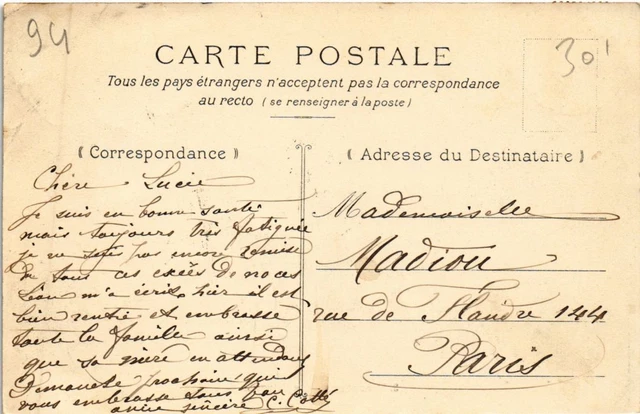 94
30'
CARTE POSTALE
Tous les pays étrangers n'acceptent pas la correspondance
au recto (se renseigner à la poste)
Correspondance
Chère Lucie
Je suis en bonne santé
mais toujours très fatiguée
je ne suis pas encore remise
de tous ces excès de noces
Léon m'a écrit hier il est
bien rentré et embrasse
toute la famille ainsi
que sa mère en attendant
Dimanche prochain qui
vous embrassa tous bon
amie sincère C.
Adresse du Destinataire
Mademoiselle
Madiou
rue de Flandre 144
Paris